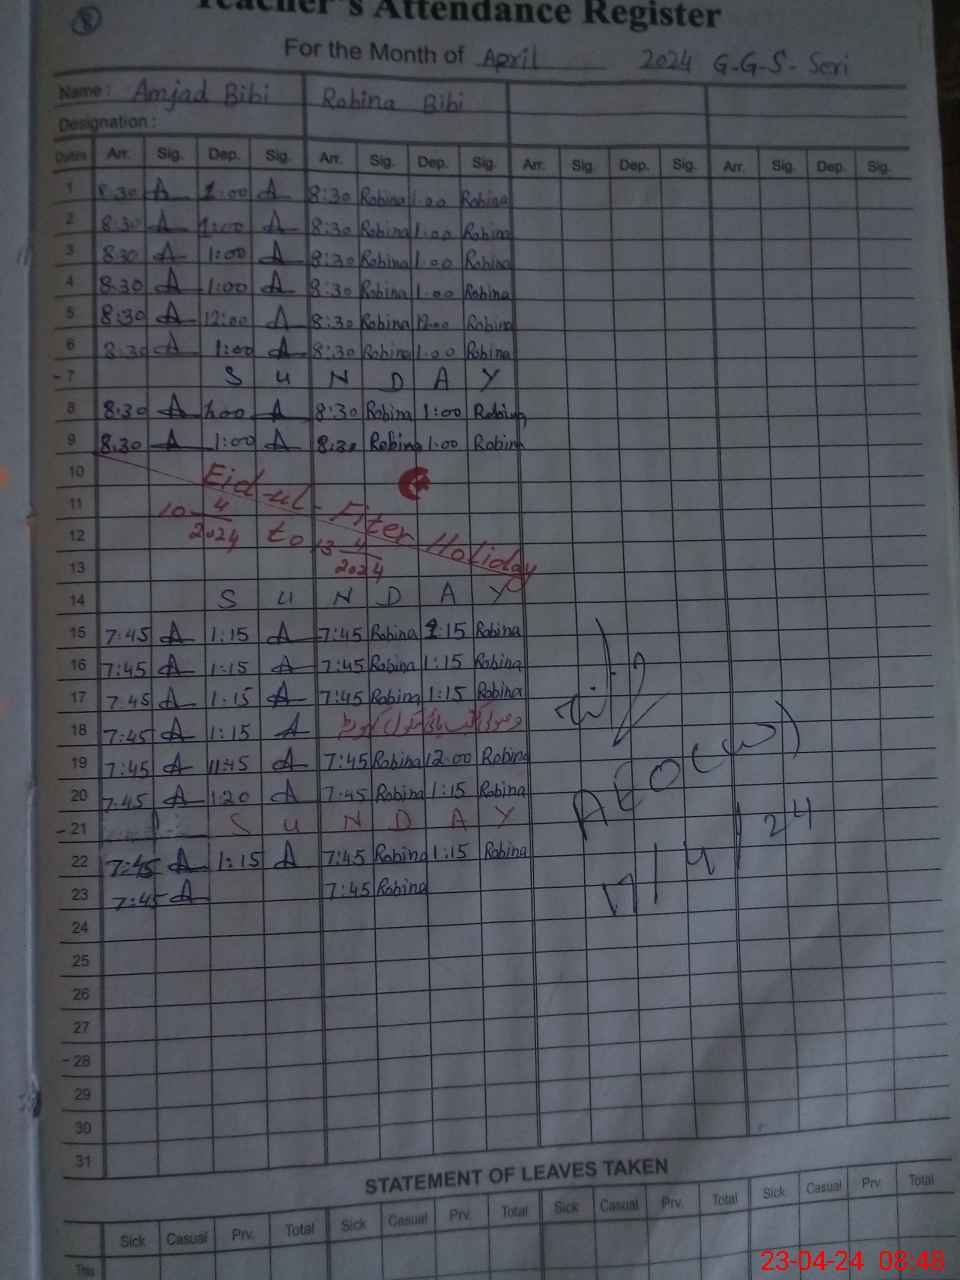 8
Teacher's Attendance Register
For the Month of April 2024 G-G-S- Seri
Name : Amjad Bibi Robina Bibi
Designation :
Dates Arr. Sig. Dep. Sig. Arr. Sig. Dep. Sig. Arr. Sig. Dep. Sig. Arr. Sig. Dep. Sig.
1 8:30 A 1:00 A 8:30 Robina 1:00 Robina
2 8:30 A 1:00 A 8:30 Robina 1:00 Robina
3 8:30 A 1:00 A 8:30 Robina 1:00 Robina
4 8:30 A 1:00 A 8:30 Robina 1:00 Robina
5 8:30 A 12:00 A 8:30 Robina 12:00 Robina
6 8:30 A 1:00 A 8:30 Robina 1:00 Robina
7 S U N D A Y
8 8:30 A 1:00 A 8:30 Robina 1:00 Robina
9 8:30 A 1:00 A 8:30 Robina 1:00 Robina
10 Eid-ul-Fiter Holiday
11 10-4-2024 to 13-4-2024
12
13
14 S U N D A Y
15 7:45 A 1:15 A 7:45 Robina 1:15 Robina
16 7:45 A 1:15 A 7:45 Robina 1:15 Robina
17 7:45 A 1:15 A 7:45 Robina 1:15 Robina
18 7:45 A 1:15 A
19 7:45 A 11:45 A 7:45 Robina 12:00 Robina
20 7:45 A 1:20 A 7:45 Robina 1:15 Robina
21 S U N D A Y
22 7:45 A 1:15 A 7:45 Robina 1:15 Robina
23 7:45 A 7:45 Robina
24
25
26
27
28
29
30
31
AEO (W)
17/4/24
STATEMENT OF LEAVES TAKEN
Sick Casual Prv. Total Sick Casual Prv. Total Sick Casual Prv. Total Sick Casual Prv. Total
This
23-04-24 08:48